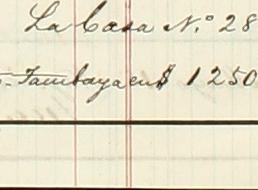 La Casa N.º 28
Tambaya en $ 1250